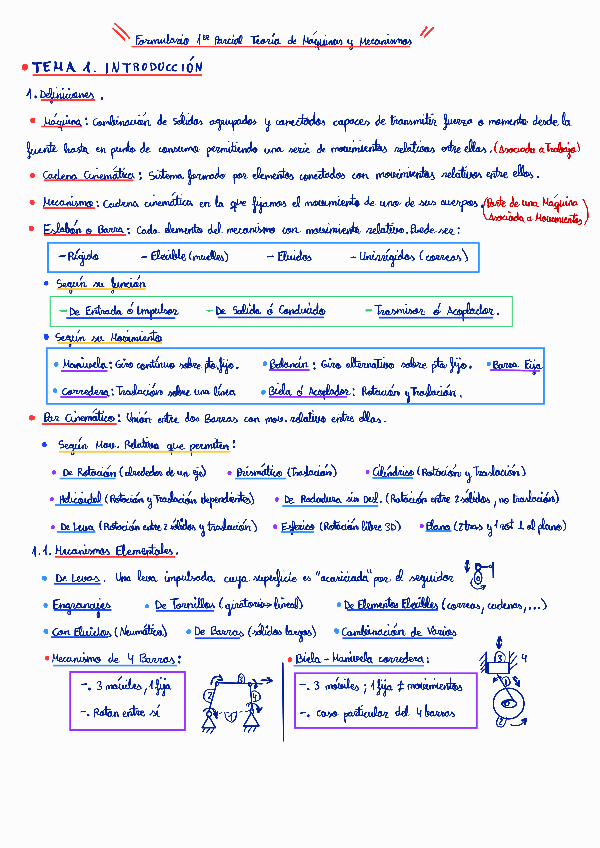 Formulario 1er Parcial Teoría de Máquinas y Mecanismos
TEMA 1. INTRODUCCIÓN
1. Definiciones.
Máquina: Combinación de Sólidos agrupados y conectados capaces de transmitir fuerza o momento desde la
fuente hasta en punto de consumo permitiendo una serie de movimientos relativos entre ellas. (Asociada a Trabajo)
Cadena Cinemática: Sistema formado por elementos conectados con movimientos relativos entre ellos.
Mecanismo: Cadena cinemática en la que fijamos el movimiento de uno de sus cuerpos. (Parte de una Máquina
Asociada a Movimientos)
Eslabón o Barra: Cada elemento del mecanismo con movimiento relativo. Puede ser:
- Rígido - Flexible (muelles) - Fluidos - Unirrígidos (correas)
Según su función
- De Entrada ó Impulsor - De Salida ó Conducido - Trasmisor ó Acoplador.
Según su Movimiento
Manivela: Giro contínuo sobre pto. fijo. Balancín: Giro alternativo sobre pto fijo. Barra Fija
Corredera: Traslación sobre una línea Biela ó Acoplador: Rotación y Traslación.
Par Cinemático: Unión entre dos Barras con mov. relativo entre ellas.
Según Mov. Relativo que permiten:
De Rotación (alrededor de un eje) Prismático (Traslación) Cilíndrico (Rotación y Traslación)
Helicoidal (Rotación y Traslación dependientes) De Rodadura sin Desl. (Rotación entre 2 sólidos, no traslación)
De Leva (Rotación entre 2 sólidos y traslación) Esférico (Rotación libre 3D) Plano (2 tras y 1 rot ⊥ al plano)
1.1. Mecanismos Elementales.
De Levas. Una leva impulsada cuya superficie es "acariciada" por el seguidor
Engranajes De Tornillos (giratorio→lineal) De Elementos Flexibles (correas, cadenas,...)
Con Fluidos (Neumática) De Barras (sólidos largos) Combinación de Varios
Mecanismo de 4 Barras: Biela-Manivela corredera:
-. 3 móviles, 1 fija -. 3 móviles; 1 fija ≠ movimientos
-. Rotan entre sí -. caso particular del 4 barras
2 3 4 1
3 4 1 2